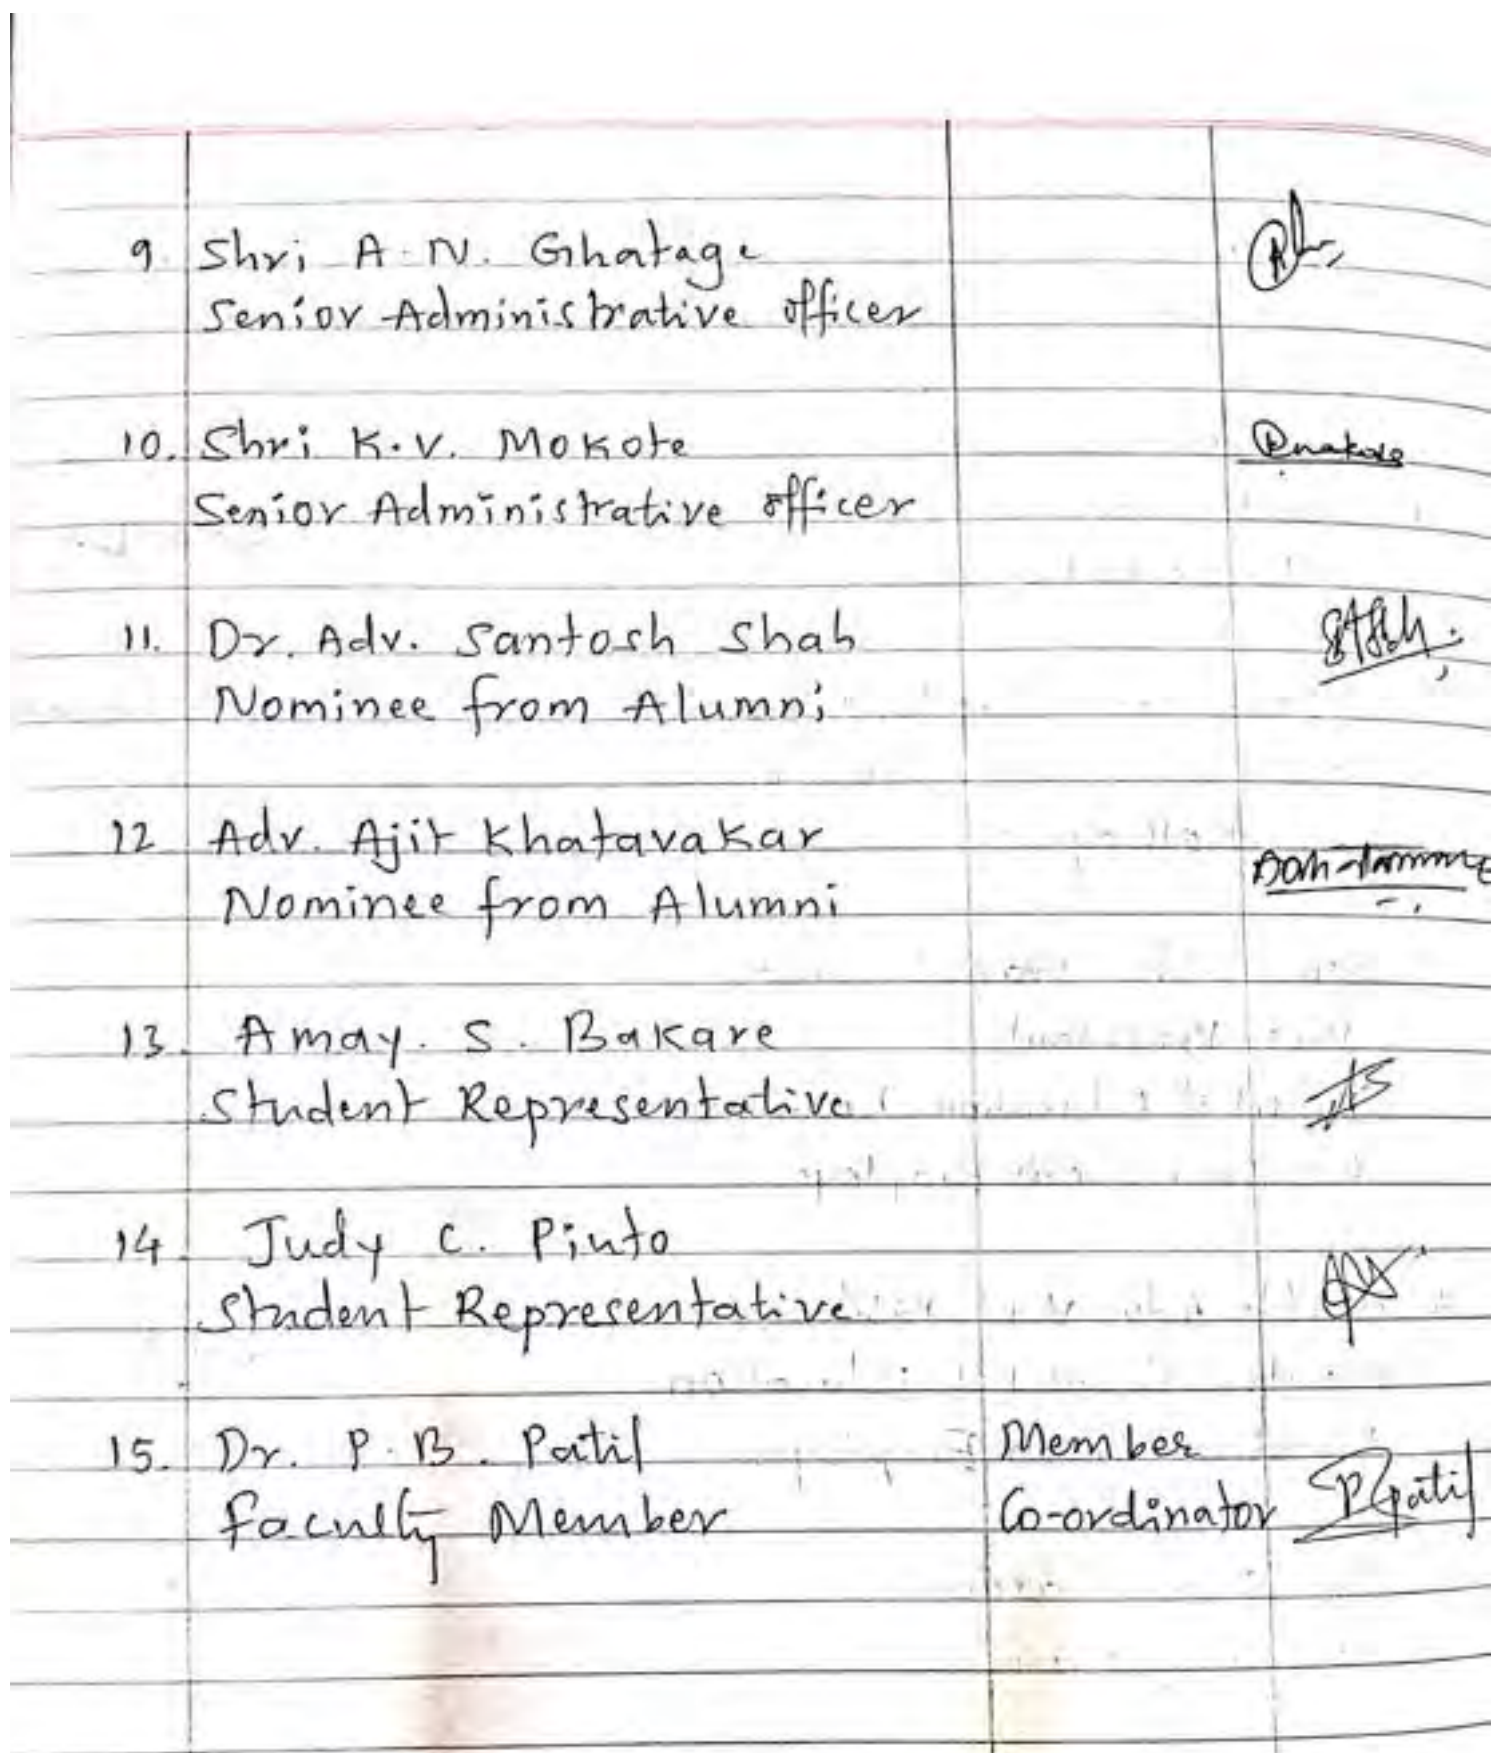 9. Shri A. N. Ghatage
Senior Administrative officer
10. Shri K. V. Mokote
Senior Administrative officer
11. Dr. Adv. Santosh Shah
Nominee from Alumni
12 Adv. Ajit Khatavakar
Nominee from Alumni
13. Amay. S. Bakare
Student Representative
14. Judy C. Pinto
Student Representative
15. Dr. P. B. Patil Member
Faculty Member Co-ordinator PPatil